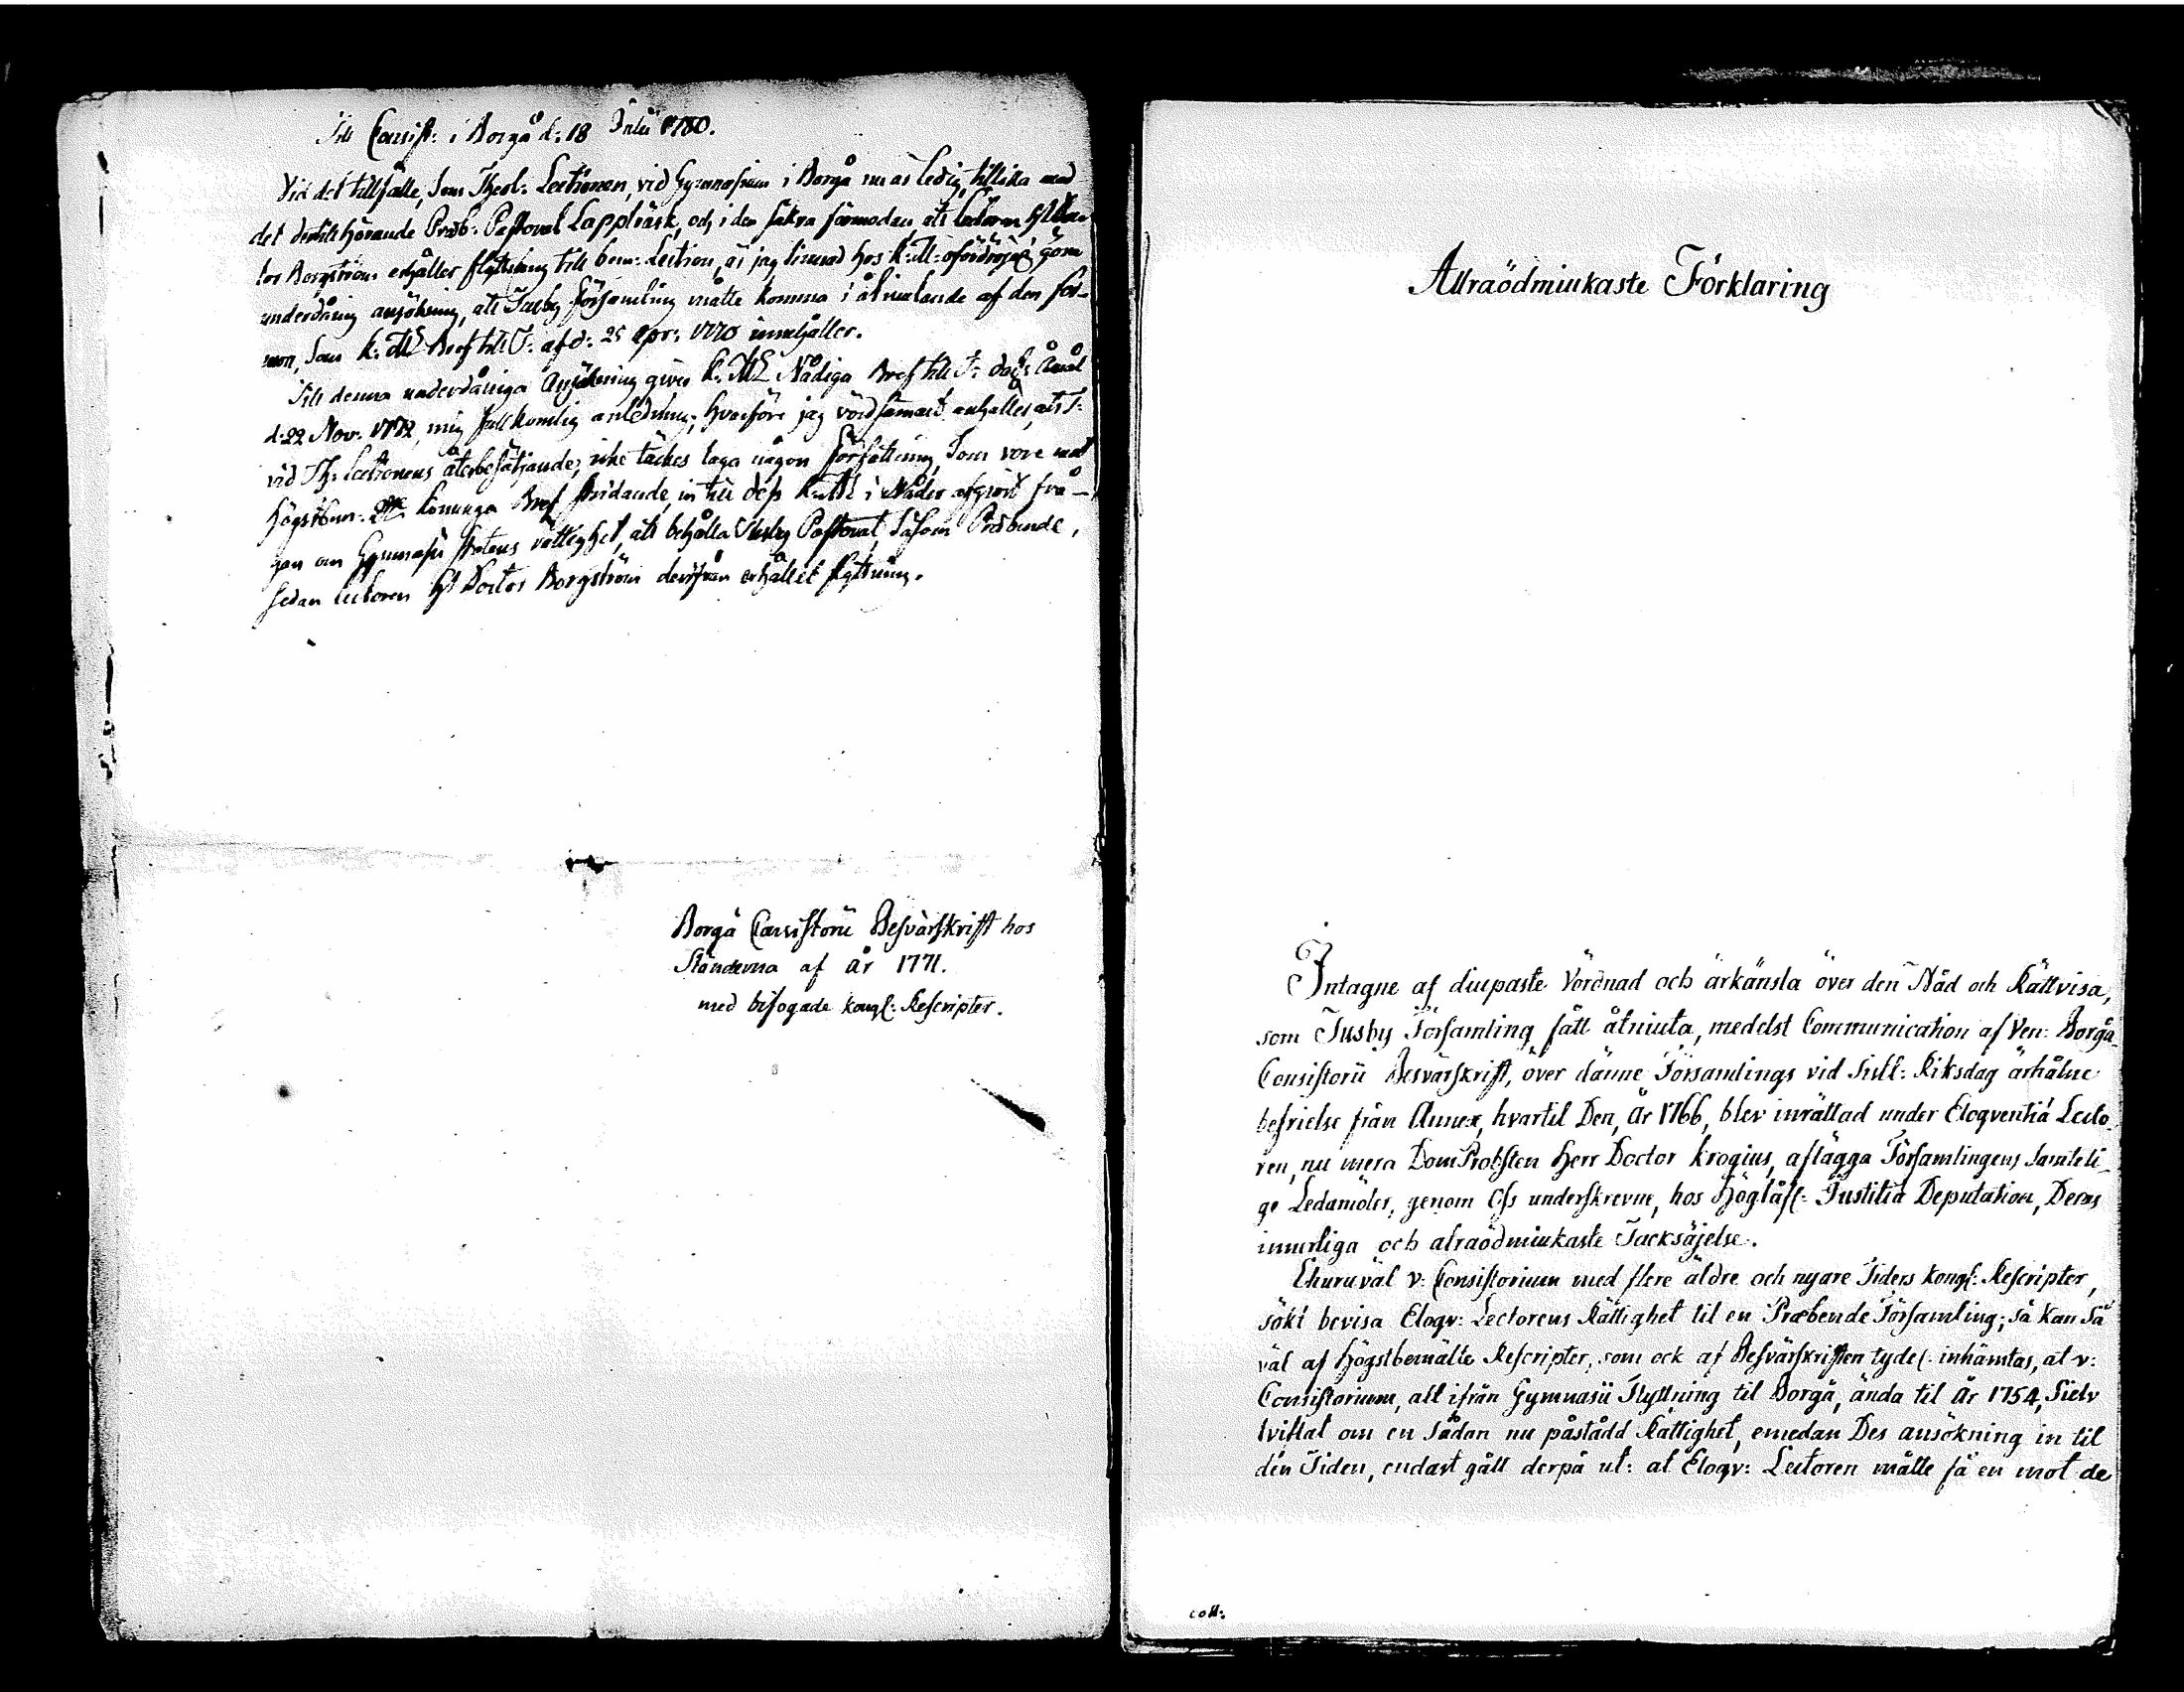 Till Consist: i Borgå d: 18 Julii 1780.
Vid det tillfälle, som Theol: Lectionen, vid Gymnasium i Borgå nu är ledig, tillika med
det dertill hörande Præb: Pastorat Lappträsk, och i den säkra förmodan, att Lectoren Hr Doc-
tor Borgström erhåller flyttning till bem: Lection, är jag sinnad hos K: M: ofördröjel: göra
underdånig ansökning, att Tusby församling måtte komma i åtniutande af den för-
mon, som K: Mts Bref till C: af d: 25 Apr: 1770 innehåller.
Till denna underdåniga Ansökning gives K: Mts Nådiga Bref till C: dat: Åmål
d: 22 Nov: 1772, mig fullkomlig anledning; hvarföre jag vördsamast anhåller, att C:
vid Th: Lectionens återbesättjande, icke täckes taga någon författning, som vore mot
högstbem: Konunga Bref stridande, in till dess K: Mt i Nåder afgjort frå-
gan om Gymnasii Statens rättighet, att behålla Tusby Pastorat, såsom Præbende,
sedan Lectoren Hr Doctor Borgström derifrån erhållit flyttning.
Borgå Consistorii Besvärskrift hos
Ständerna af År 1771.
med bifogade kongl: Rescripter.
Allraödmiukaste Förklaring
Intagne af diupaste Vördnad och ärkänsla över den Nåd och Rättvisa,
som Tusby Församling fått åtniuta, medelst Communication af Ven: Borgå
Consistorii Besvärskrift, över dänne Församlings vid sistl: Riksdag ärhålne
befrielse från Annex, hvartil Den, År 1766, blev inrättad under Eloqventiæ Lecto-
ren, nu mera DomProbsten Herr Doctor Krogius, aflägga Församlingens samteli-
ge Ledamöter, genom Oss underskrevne, hos Höglåfl: Justitiæ Deputation, Deras
innerliga och alraödmiukaste Tacksäjelse.
Ehuruväl v: Consistorium med flere äldre och nyare Tiders Kongl: Rescripter,
sökt bevisa Eloqv: Lectorens Rättighet til en Præbende Församling; så kan så
väl af Högstbemälte Rescripter, som ock af Besvärskriften tydel: inhämtas, at v:
Consistorium, alt ifrån Gymnasii Flyttning til Borgå, ända til År 1754, Sielv
tviflat om en sådan nu påstådd Rättighet, emedan Des ansökning in til
den Tiden, endast gått derpå ut: at Eloqv: Lectoren måtte få en mot de
coll: